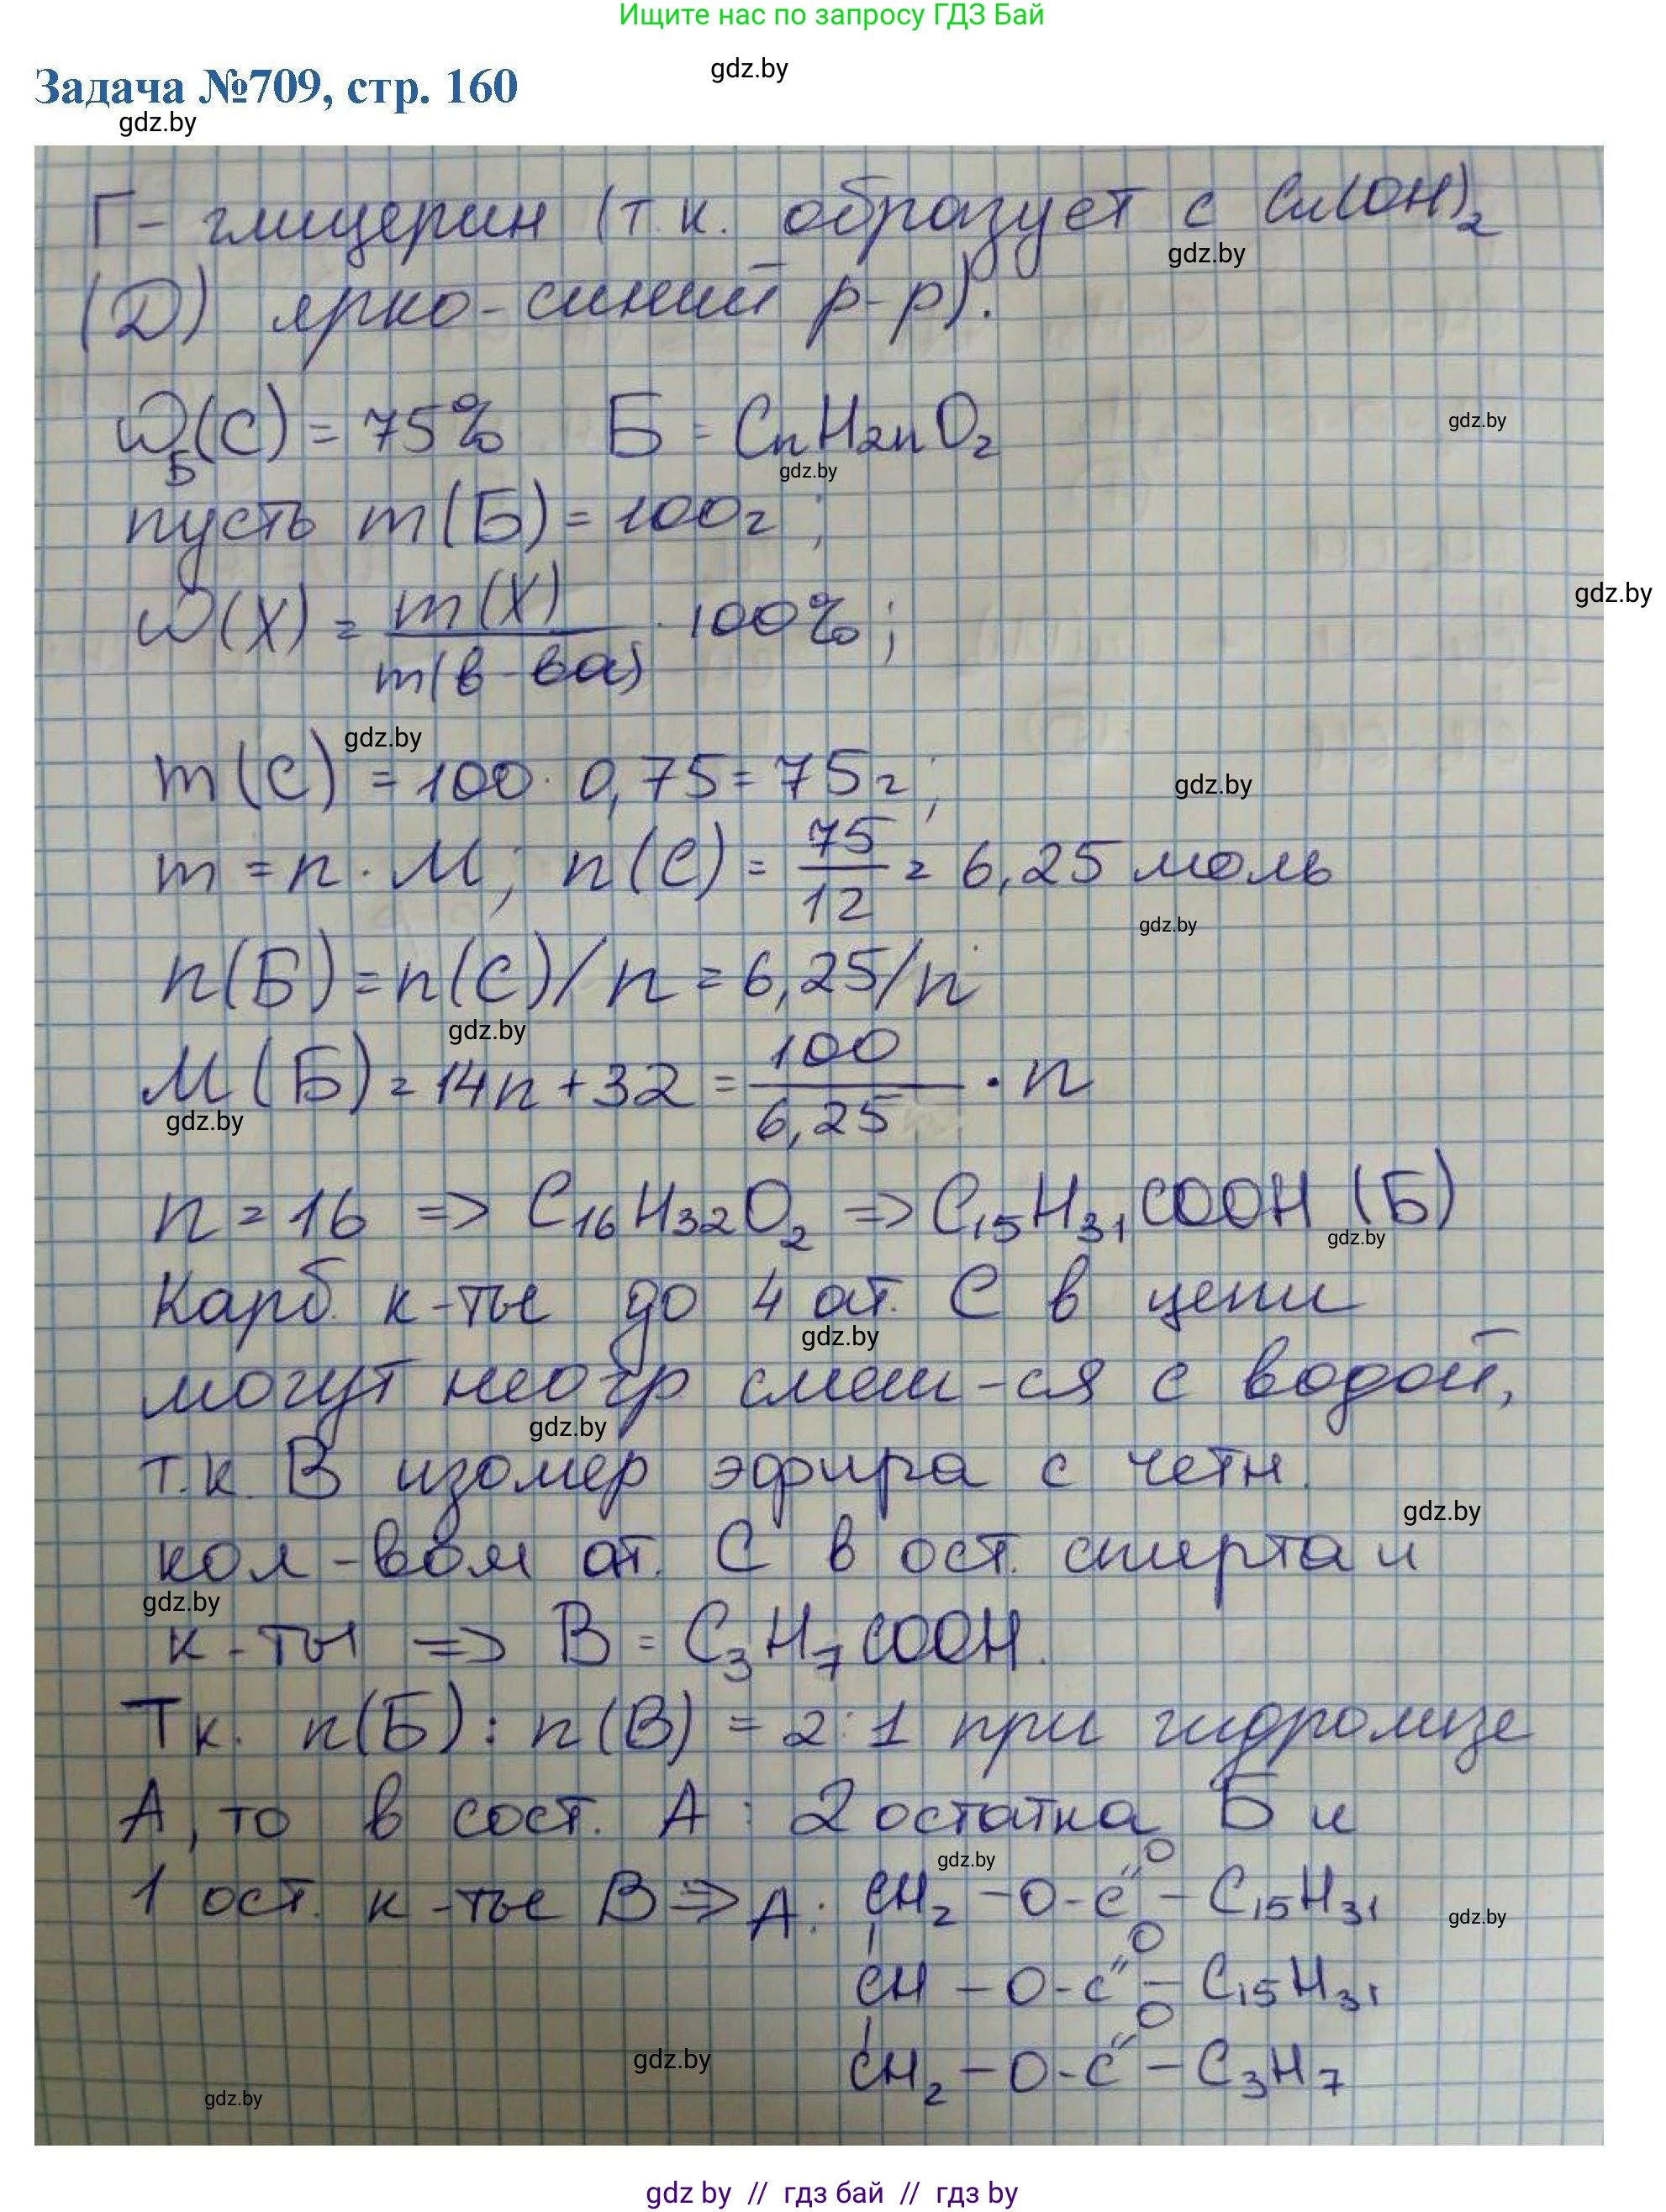 Ищите нас по запросу ГДЗ Бай
Задача №709, стр. 160
gdz.by
gdz.by
Г - глицерин (т.к. образует с Cu(OH)₂
gdz.by
(Д) ярко-синий р-р).
ω_Б(C) = 75% Б = CnH2nO₂
gdz.by
gdz.by
пусть m(Б) = 100г ;
ω(X) = m(X) / m(в-ва) · 100% ;
gdz.by
gdz.by
m(C) = 100 · 0,75 = 75г ;
gdz.by
m = n · M ; n(C) = 75/12 = 6,25 моль
gdz.by
n(Б) = n(C)/n = 6,25/n
gdz.by
M(Б) = 14n + 32 = 100/6,25 · n
gdz.by
n = 16 => C₁₆H₃₂O₂ => C₁₅H₃₁COOH (Б)
gdz.by
Карб. к-ты до 4 ат. C в цепи
gdz.by
могут неогр смеш-ся с водой,
gdz.by
т.к. В изомер эфира с четн.
gdz.by
кол-вом ат. C в ост. спирта и
gdz.by
к-ты => В = C₃H₇COOH.
Тк. n(Б) : n(В) = 2:1 при гидролизе
А, то в сост. А : 2 остатка Б и
gdz.by
1 ост. к-ты В => А: CH₂ - O - C(=O) - C₁₅H₃₁
gdz.by
CH - O - C(=O) - C₁₅H₃₁
gdz.by
CH₂ - O - C(=O) - C₃H₇
gdz.by
gdz by // гдз бай // гдз by